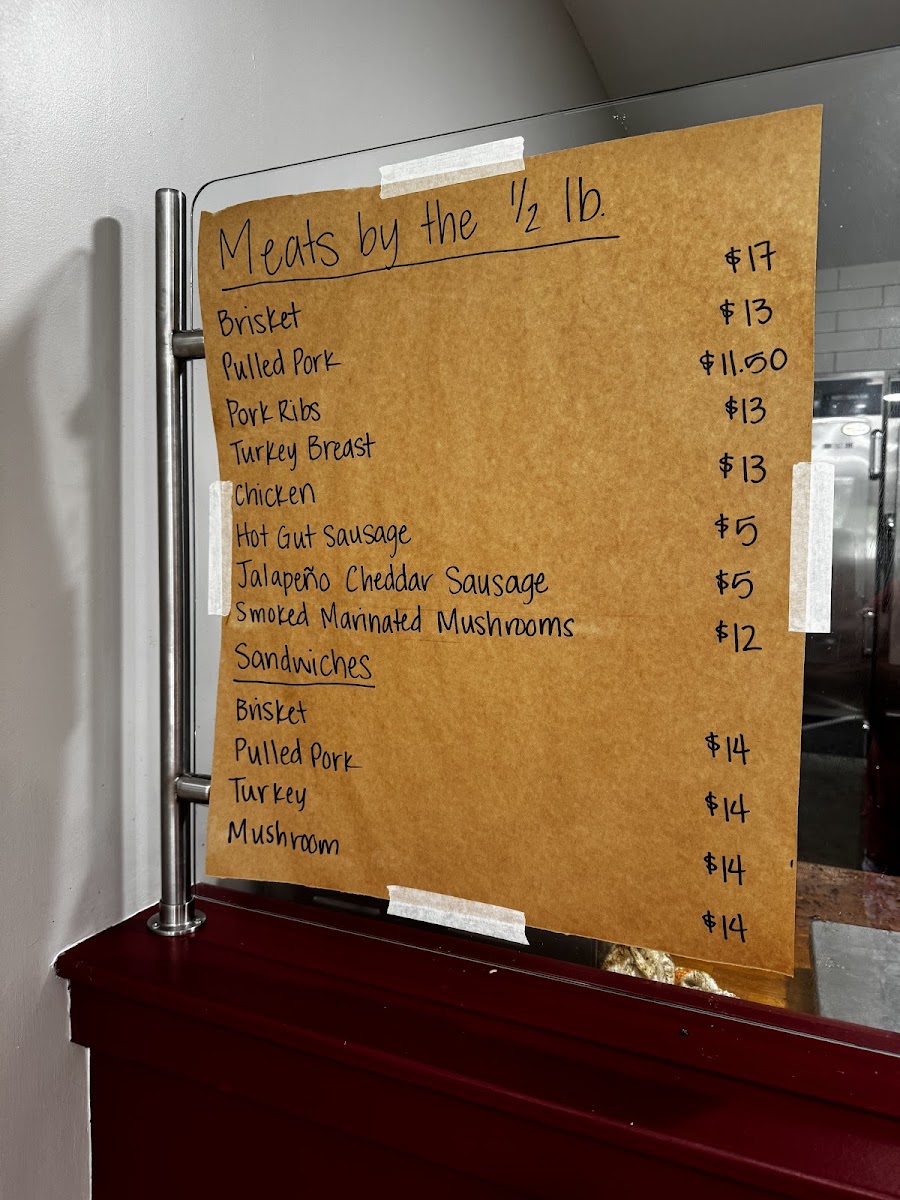 Meats by the 1/2 lb.
Brisket $17
Pulled Pork $13
Pork Ribs $11.50
Turkey Breast $13
Chicken $13
Hot Gut Sausage $5
Jalapeño Cheddar Sausage $5
Smoked Marinated Mushrooms $12
Sandwiches
Brisket $14
Pulled Pork $14
Turkey $14
Mushroom $14